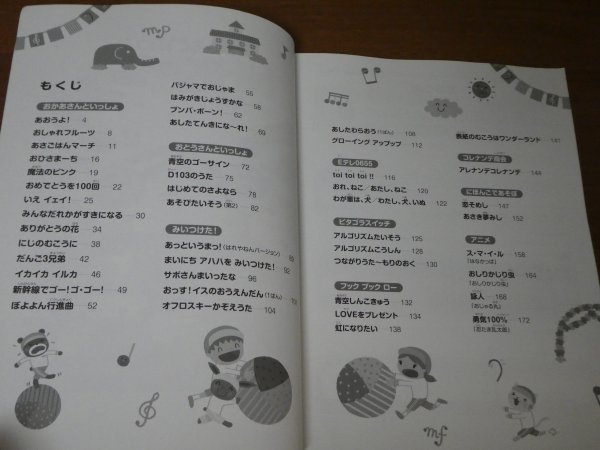 もくじ
おかあさんといっしょ
あおうよ! 4
おしゃれフルーツ 8
あさごはんマーチ 11
おひさまーち 16
魔法のピンク 19
おめでとうを100回 22
いえ イェイ! 25
みんなだれかがすきになる 30
ありがとうの花 34
にじのむこうに 38
だんご3兄弟 42
イカイカ イルカ 46
新幹線でゴー!ゴ・ゴー! 49
ぼよよん行進曲 52
パジャマでおじゃま 55
はみがきじょうずかな 58
ブンバ・ボーン! 62
あしたてんきにな〜れ! 69
おとうさんといっしょ
青空のゴーサイン 72
D103のうた 75
はじめてのさよなら 78
あそびたいそう(第2) 82
みいつけた!
あっというまっ!(はれやねんバージョン) 86
まいにち アハハを みいつけた! 92
サボさんまいったな 96
おっす!イスのおうえんだん(1ばん) 102
オフロスキーかぞえうた 104
あしたわらおう(1ばん) 108
グローイング アップップ 112
Eテレ0655
toi toi toi !! 116
おれ、ねこ/あたし、ねこ 120
わが輩は、犬/わたし、犬、いぬ 122
ピタゴラスイッチ
アルゴリズムたいそう 125
アルゴリズムこうしん 128
つながりうた〜もりのおく 130
フック ブック ロー
青空しんこきゅう 132
LOVEをプレゼント 134
虹になりたい 138
表紙のむこうはワンダーランド 141
コレナンデ商会
アレナンデコレナンデ 144
にほんごであそぼ
恋そめし 147
あさき夢みし 152
アニメ
ス・マ・イ・ル 158
(はなかっぱ)
おしりかじり虫 164
(おしりかじり虫)
詠人 168
(おじゃる丸)
勇気100% 172
(忍たま乱太郎)